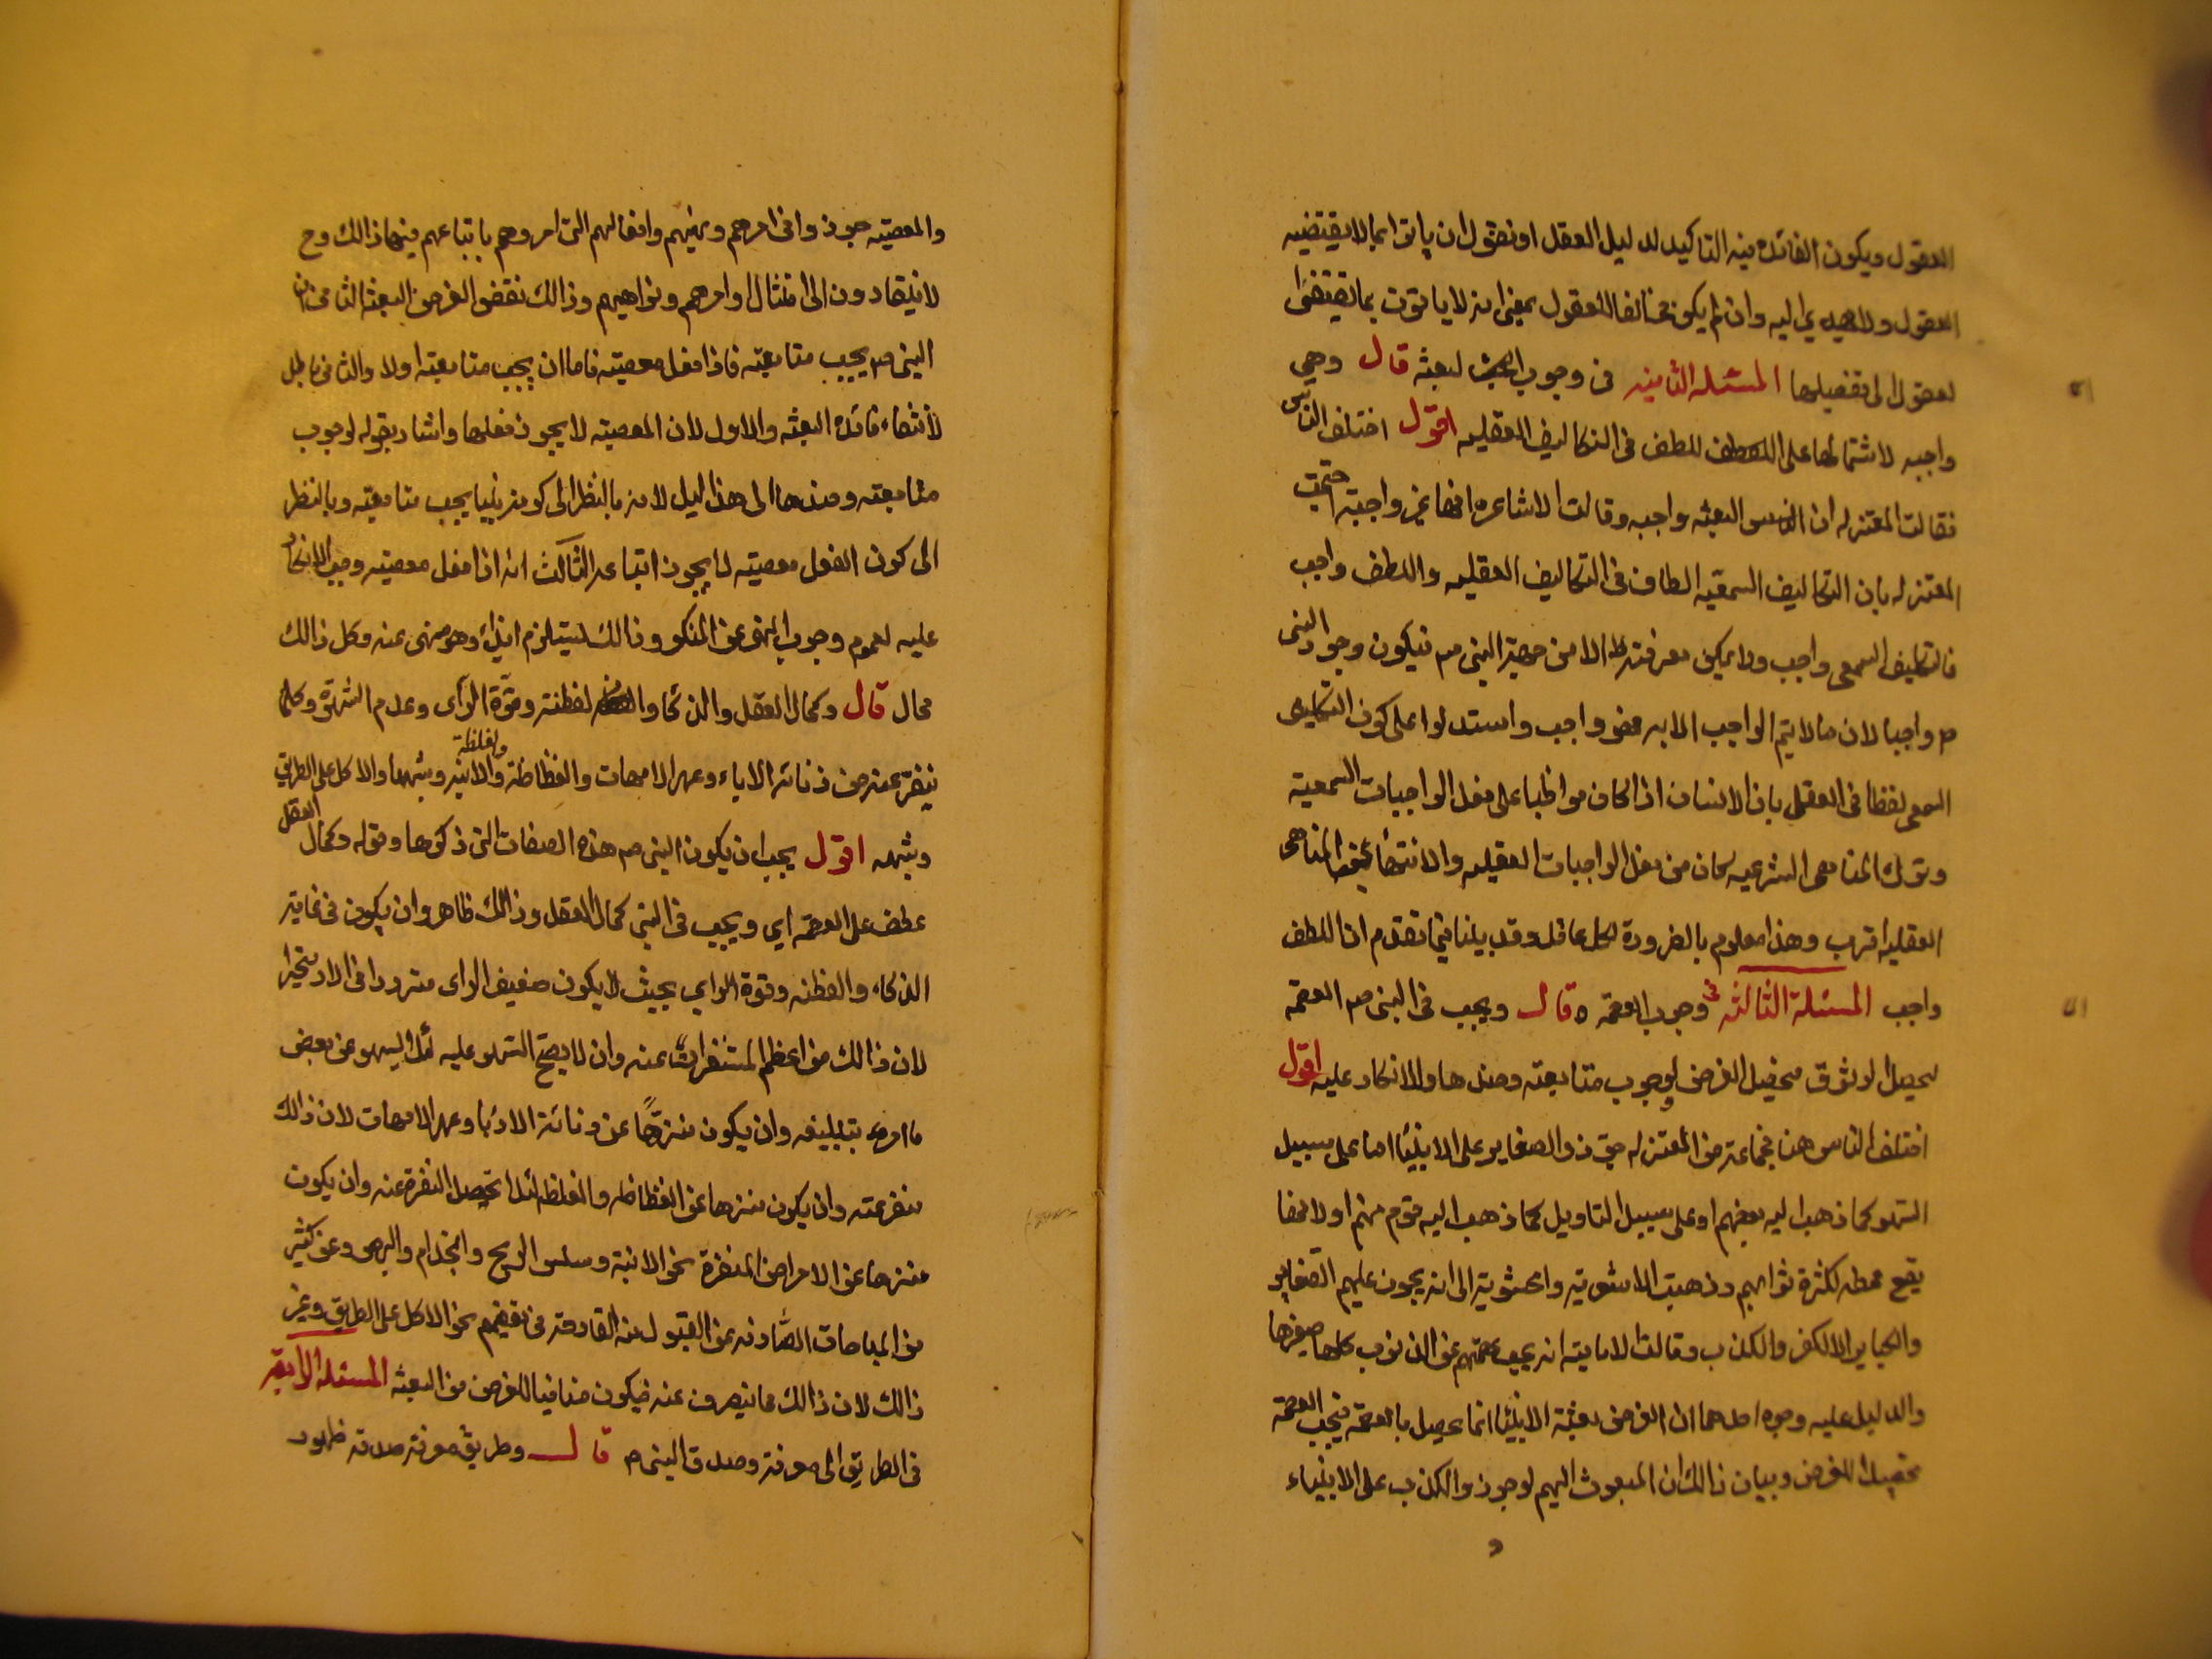 العقول ويكون الفائده فيه التاكيد لدليل العقل او نقول ان ياتوا بما لا يقتضيه
العقول ولا يهدي اليه وان لم يكن مخالفا للعقول بمعنى انه لا ياتون بما يقتضى
لعقول الى تفصيلها المسئله الثانيه فى وجوب البعثه قال وهي
واجبه لاشتمالها على اللطف للطف فى التكاليف العقليه اقول اختلف الناس
فقالت المعتزله ان البعثه واجبه وقالت الاشاعره انها غير واجبة احتجت
المعتزله بان التكاليف السمعيه الطاف فى التكاليف العقليه واللطف واجب
فالتكليف السمعى واجب ولا يمكن معرفته الا من جهة النبى ص فيكون وجود النبى
ص واجبا لان ما لا يتم الواجب الا به فهو واجب واستدلوا على كون التكليف
السمعى لطفا فى العقلى بان الانسان اذا كان مواظبا على فعل الواجبات السمعية
وترك المناهى الشرعيه كان من فعل الواجبات العقليه والانتهاء عن المناهى
العقليه اقرب وهذا معلوم بالضرورة لكل عاقل وقد بينا فيما تقدم ان اللطف
واجب المسئلة الثالثه فى وجوب العصمه ه قال ويجب فى النبى ص العصمه
ليحصل الوثوق فيحصل الغرض ولوجوب متابعته وضدها والانكار عليه اقول
اختلف الناس هنا فجماعة من المعتزله جوزوا الصغاير على الانبياء اما على سبيل
السهو كما ذهب اليه بعضهم او على سبيل التاويل كما ذهب اليه قوم منهم او لانها
يقع محبطه لكثرة ثوابهم وذهبت الاشعرية والحشوية الى انه يجوز عليهم الصغاير
والكباير الا الكفر والكذب وقالت الامامية انه يجب عصمتهم عن الذنوب كلها صغيرها
والدليل عليه وجوه احدهما ان الغرض بعثة الانبياء انما يحصل بالعصمة فيجب العصمة
تحصيلا للغرض وبيان ذالك ان المبعوث اليهم لو جوزوا الكذب على الانبياء
و
والمعصية جوزوا فى امرهم ونهيهم وافعالهم التى امروهم باتباعهم فيها ذالك وح
لا ينقادون الى امتثال اوامرهم ونواهيهم وذالك نقض الغرض البعثه الثانى ان
النبى ص يجب متابعته فاذا فعل معصيته فاما ان يجب متابعته اولا والثانى باطل
لانتفاء فائده البعثه والاول لان المعصيه لا يجوز فعلها واشار بقوله لوجوب
متابعته وضدها الى هذا الدليل لانه بالنظر الى كونه نبيا يجب متابعته وبالنظر
الى كون الفعل معصيته لا يجوز اتباعه الثالث انه اذا فعل معصيته وجب الانكار
عليه لعموم وجوب النهى عن المنكر وذالك يستلزم ايذائه وهو منهى عنه وكل ذالك
محال قال وكمال العقل والذكاء والفطنة وقوة الرأى وعدم السهو وكلما
ينفر عنه من دنائة الاباء وعهر الامهات والفظاظة والغلظة والابنه وشبهها والاكل على الطريق
وشبهه اقول يجب ان يكون النبى ص هذه الصفات التى ذكرها وقوله وكمال العقل
عطف على العصمه اي ويجب فى النبى كمال العقل وذالك ظاهر وان يكون فى غاية
الذكاء والفطنه وقوة الراي بحيث لا يكون ضعيف الراى مترددا فى الامر متحيرا
لان ذالك من اعظم المنفرات عنه وان لا يصح السهو عليه لئلا يسهو عن بعض
ما امر بتبليغه وان يكون منزها عن دنائة الاباء وعهر الامهات لان ذالك
منفر عنه وان يكون منزها عن الفظاظه والغلظه لئلا يحصل النفرة عنه وان يكون
منزها عن الامراض المنفرة نحو الابنة وسلس الريح والجذام والبرص وعن كثير
من المباحات الصادفه عن القبول منه القادحه فى تعظيمه نحو الاكل على الطريق وغير
ذالك لان ذالك مما ينصرف عنه فيكون منافيا للغرض من البعثه المسئله الرابعة
فى الطريق الى معرفة وصدق النبى ص قال وطريق معرفة صدقه ظهور